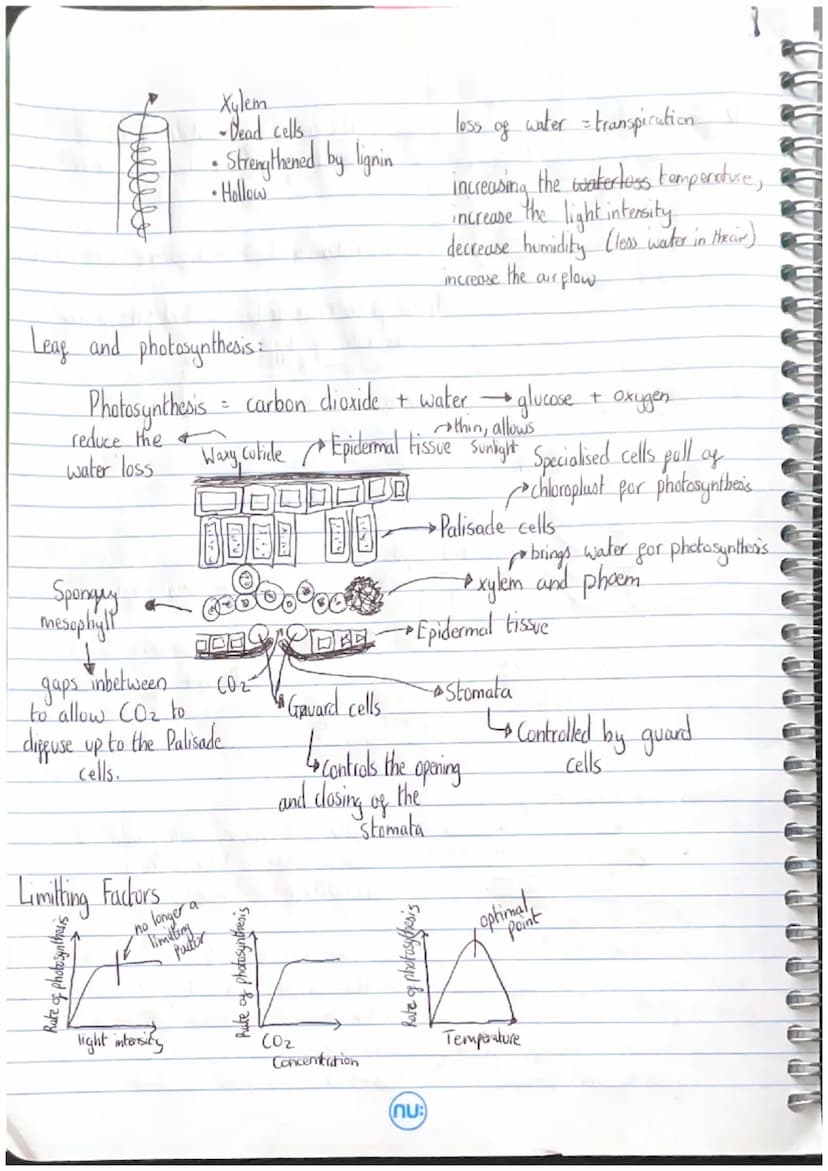 Xylem
• Dead cells
• Strengthened by lignin
• Hollow
loss of water = transpiration
increasing the waterloss temperature,
increase the light intensity
decrease humidity (less water in the air)
increase the air flow
Leaf and photosynthesis:
Photosynthesis = carbon dioxide + water → glucose + oxygen
reduce the
water loss
Waxy cuticle
Epidermal tissue
→ thin, allows
sunlight
Specialised cells full of
→ chloroplast for photosynthesis
→ Palisade cells
→ brings water for photosynthesis
→ xylem and phoem
Spongy
mesophyll
→ Epidermal tissue
gaps inbetween
to allow CO2 to
diffuse up to the Palisade
cells.
CO2
Gauard cells
→ Controls the opening
and closing of the
Stomata
→ Stomata
→ Controlled by guard
cells
Limitting Factors
Rate of photosynthesis
no longer a
limitting
factor
light intensity
Rate of photosynthesis
CO2
Concentration
Rate of photosynthesis
optimal
point
Temperature
nu: